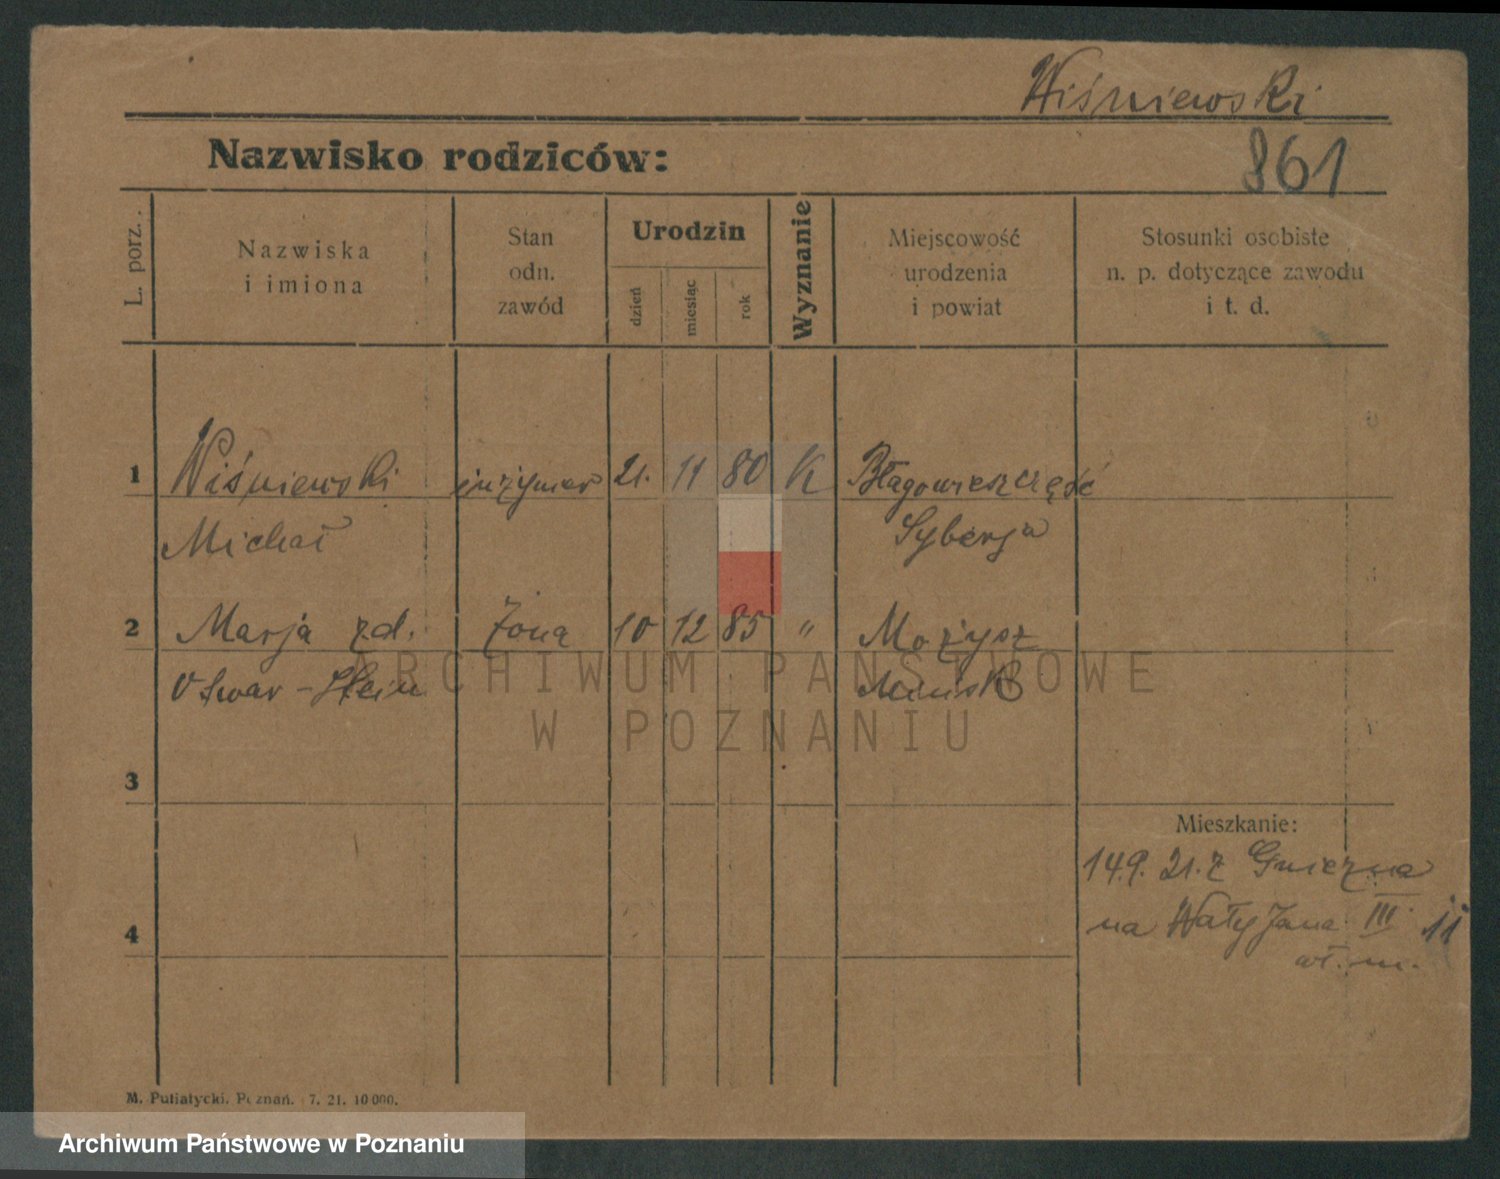 Wiśniewski
Nazwisko rodziców:
861
L. porz.
Nazwiska
i imiona
Stan
odn.
zawód
Urodzin
dzień
miesiąc
rok
Wyznanie
Miejscowość
urodzenia
i powiat
Stosunki osobiste
n. p. dotyczące zawodu
i t. d.
1 Wiśniewski inżynier 21. 11 80 K Błagowieszczęść
Michał Syberja
2 Marja zd. żona 10 12 85 " Możysz
Minsk
ARCHIWUM PAŃSTWOWE
W POZNANIU
3
Mieszkanie:
14.9. 21. z Gniezna
4 na Wały Jana III 11
wł. m.
M. Putiatycki. Poznań. 7. 21. 10 000.
Archiwum Państwowe w Poznaniu